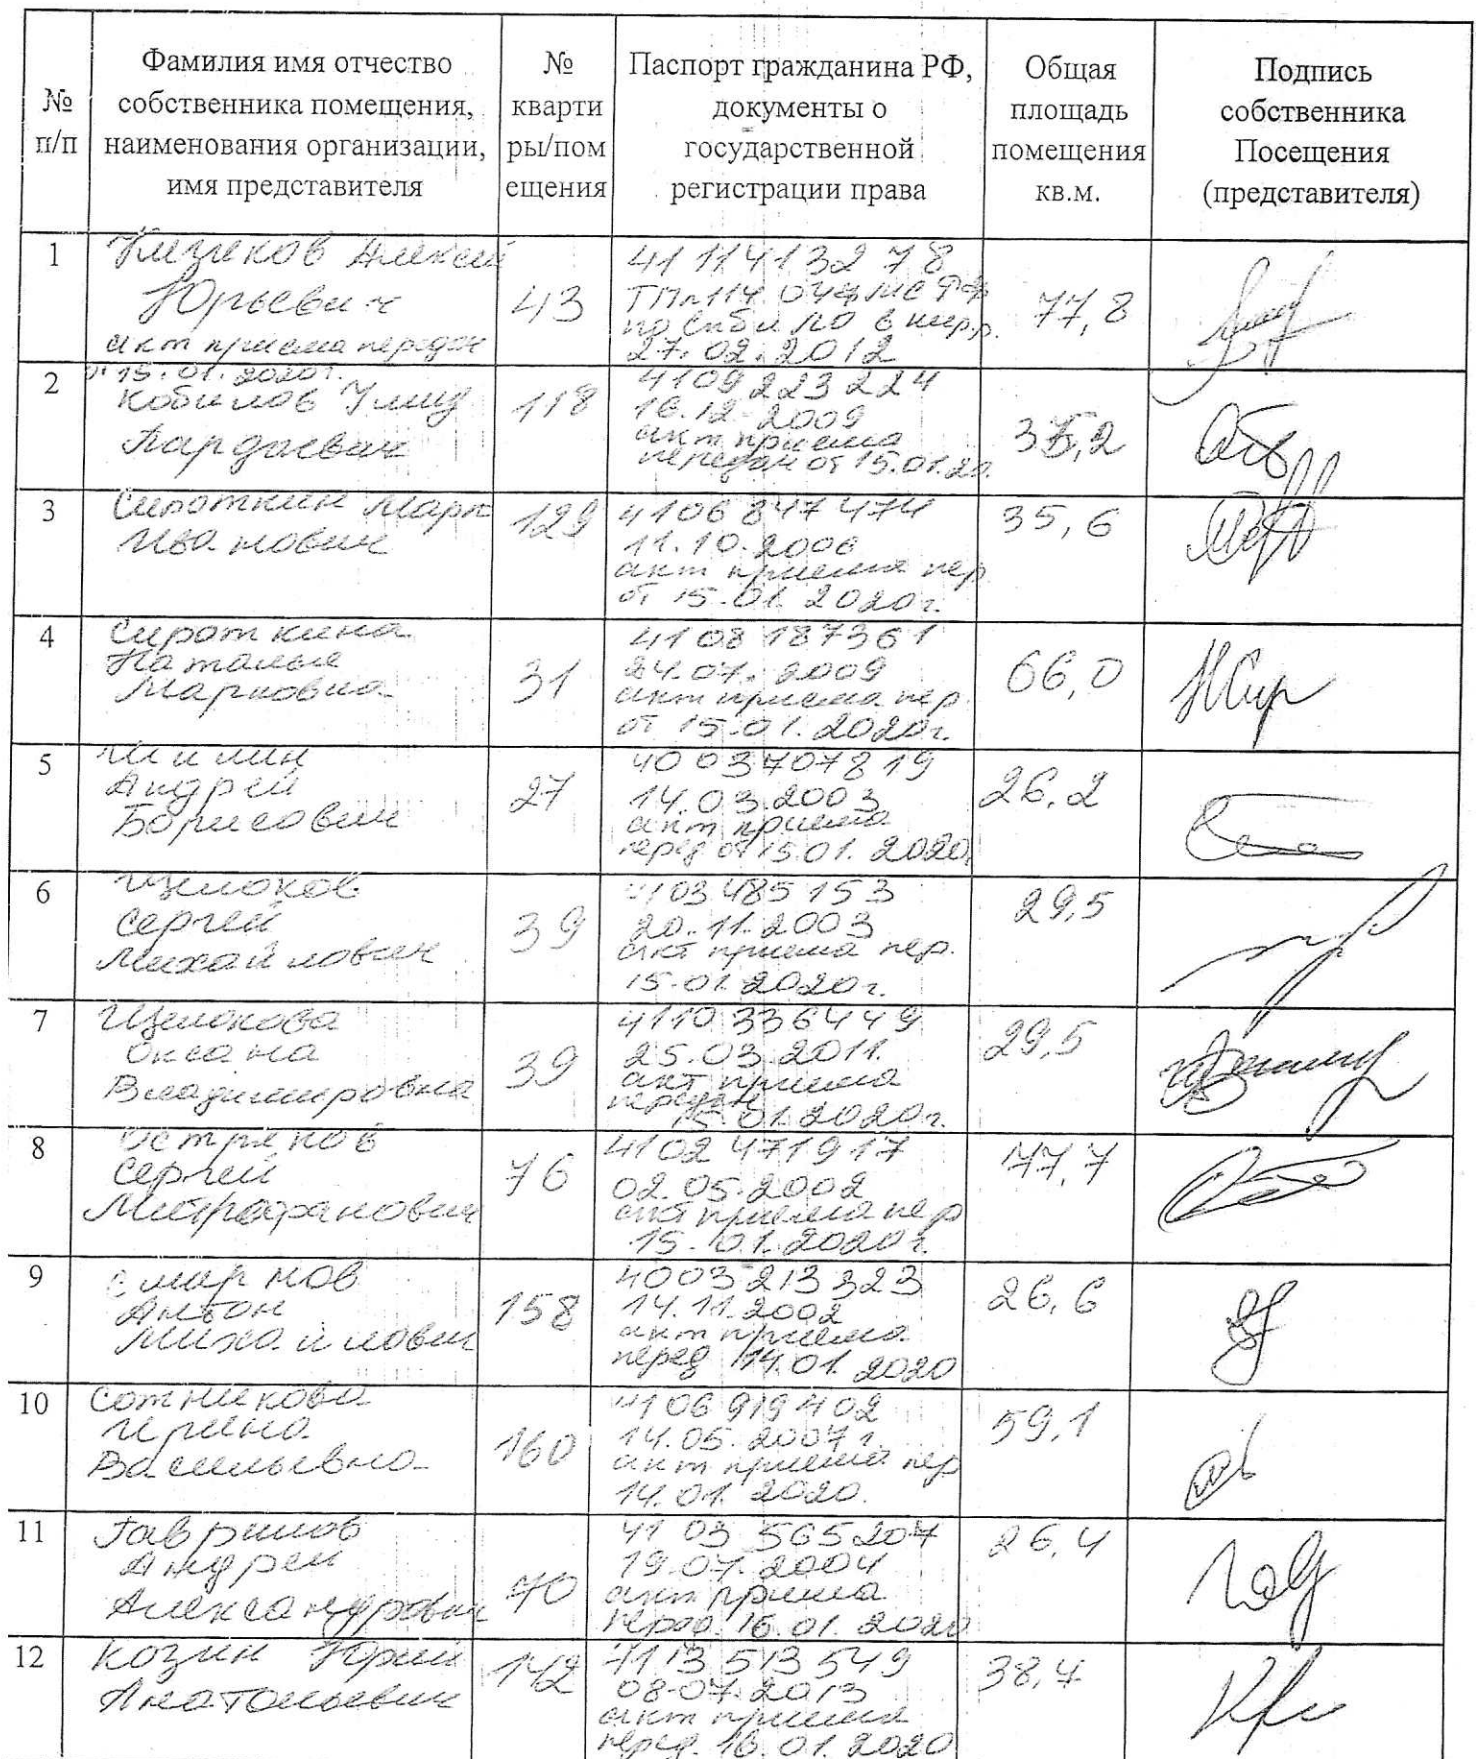 № п/п
Фамилия имя отчество собственника помещения, наименования организации, имя представителя
№ кварти ры/пом ещения
Паспорт гражданина РФ, документы о государственной регистрации права
Общая площадь помещения кв.м.
Подпись собственника Посещения (представителя)
1
Алексей
Юрьевич
акт приема передачи
от 15.01.2020г.
43
41 11 413278
27.02.2012
77,8
2
Кобилов Умид
118
4109 223 224
16.12.2009
акт приема
передач от 15.01.20
3
Сироткин Марк
Иванович
129
4106 847 474
11.10.2006
акт приема пер
от 15.01.2020г.
35,6
4
Сироткина
Наталья
Марковна
31
4108 187361
24.07.2009
акт приема пер
от 15.01.2020г.
66,0
5
Андрей
Борисович
27
40 03 707819
14.03.2003
акт приема
перед от 15.01.2020
26,2
6
Щелоков
Сергей
Михайлович
39
4103 485 153
20.11.2003
акт приема пер.
15.01.2020г.
29,5
7
Щелокова
Оксана
Владимировна
39
4110 336449
25.03.2011.
акт приема
передач
15.01.2020г.
29,5
8
Остряков
Сергей
Митрофанович
76
4102 471917
02.05.2002
акт приема пер
15.01.2020г.
77,7
9
Смирнов
Антон
Михайлович
158
4003 213323
14.11.2002
акт приема
перед 14.01.2020
26,6
10
Сотникова
Ирина
Васильевна
160
4106 919402
14.05.2007г.
акт приема пер
14.01.2020.
59,1
11
Гаврилов
Андрей
Александрович
70
41 03 565207
19.07.2004
акт приема
перед. 16.01.2020
26,4
12
Козин Юрий
Анатольевич
142
4113 513549
08.07.2013
акт приема
перед. 16.01.2020
38,4